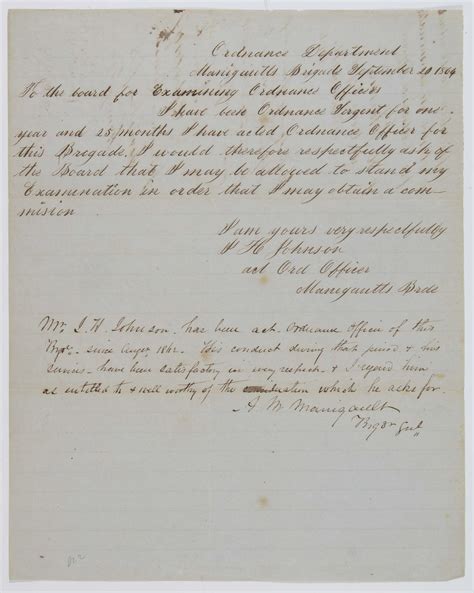 Ordnance Department
Manigaultts Brigade September 20 1864
To the board for Examining Ordnance Officers
I have been Ordnance Sergent for one
year and 25 months I have acted Ordnance Officer for
this Brigade, I would therefore respectfully ask of
the Board that I may be allowed to stand my
Examination in order that I may obtain a com-
mision
I am yours very respectfully
J H Johnson
act Ord Officer
Manigaultts Brde
Mr. J. H. Johnson has been act. Ordnance officer of this
Bgde. since 1862. His conduct during that period & his
services have been satisfactory in every respect & I regard him
as entitled to & well worthy of the which he asks for.
A. M. Manigault
Brigdr Genl